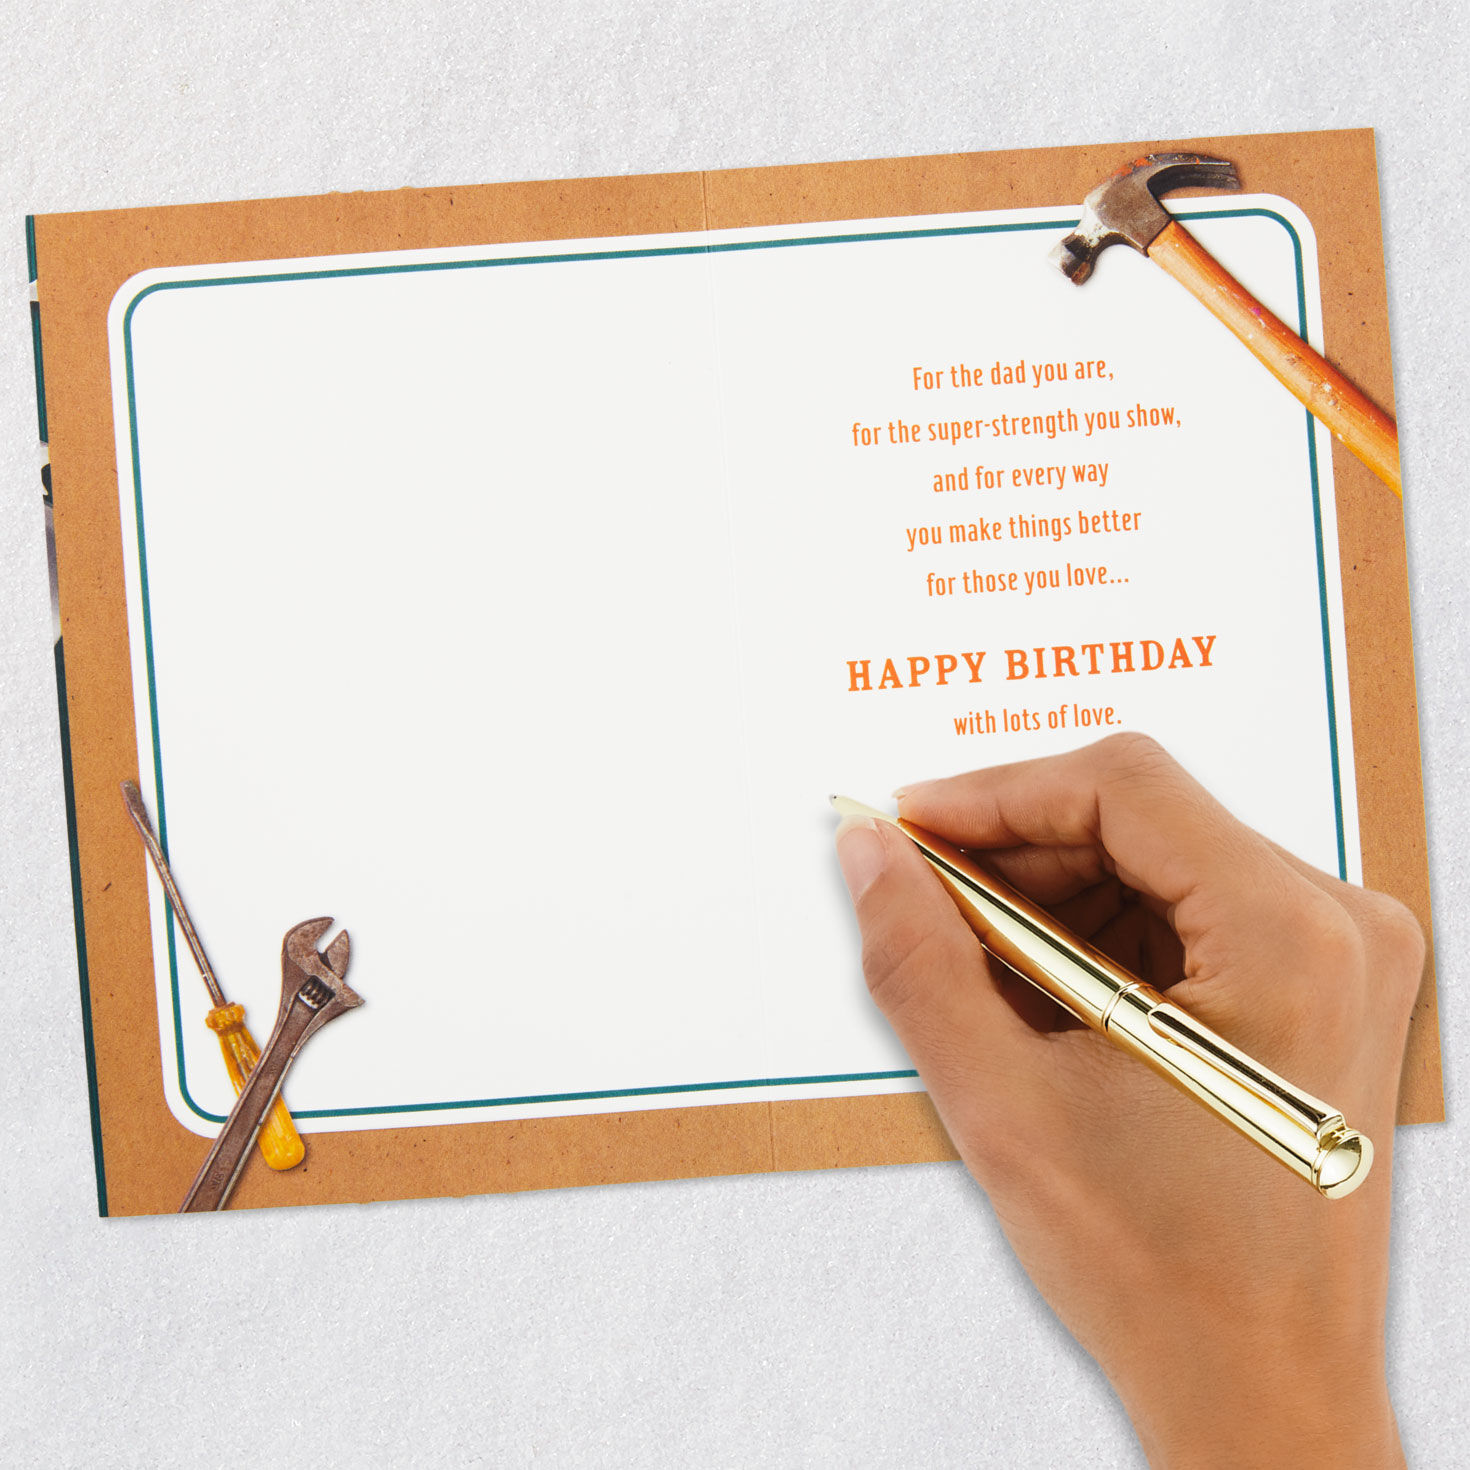 For the dad you are,
for the super-strength you show,
and for every way
you make things better
for those you love...
HAPPY BIRTHDAY
with lots of love.